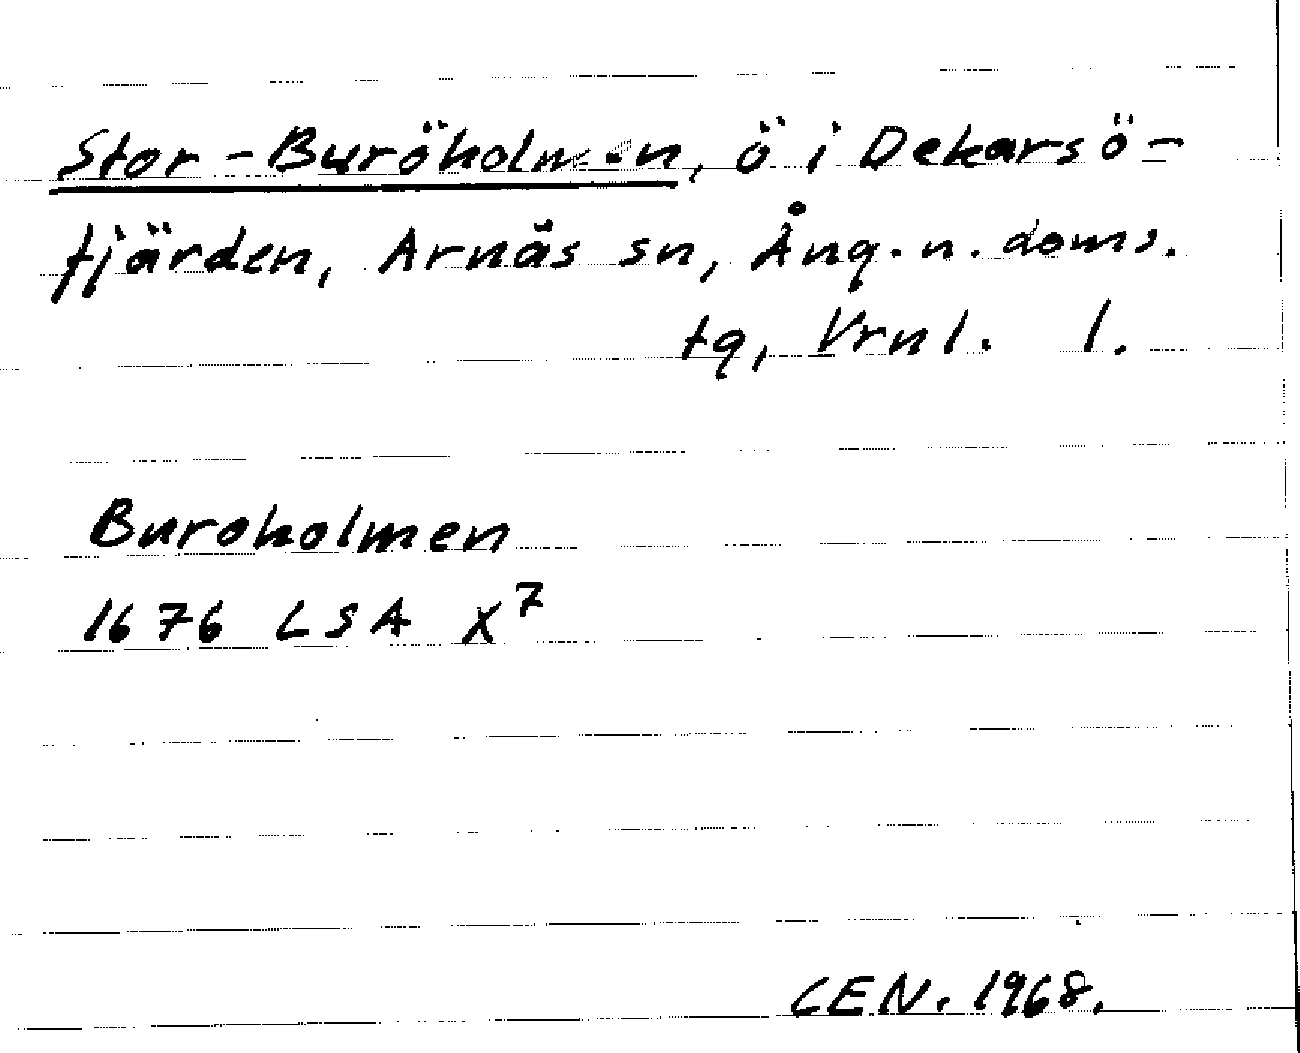 Stor-Buröholmen, ö i Dekarsö-
fjärden, Arnäs sn, Ång. n. doms.
tg, Vrnl. l.
Buroholmen
1676 LSA X⁷
CEN. 1968.